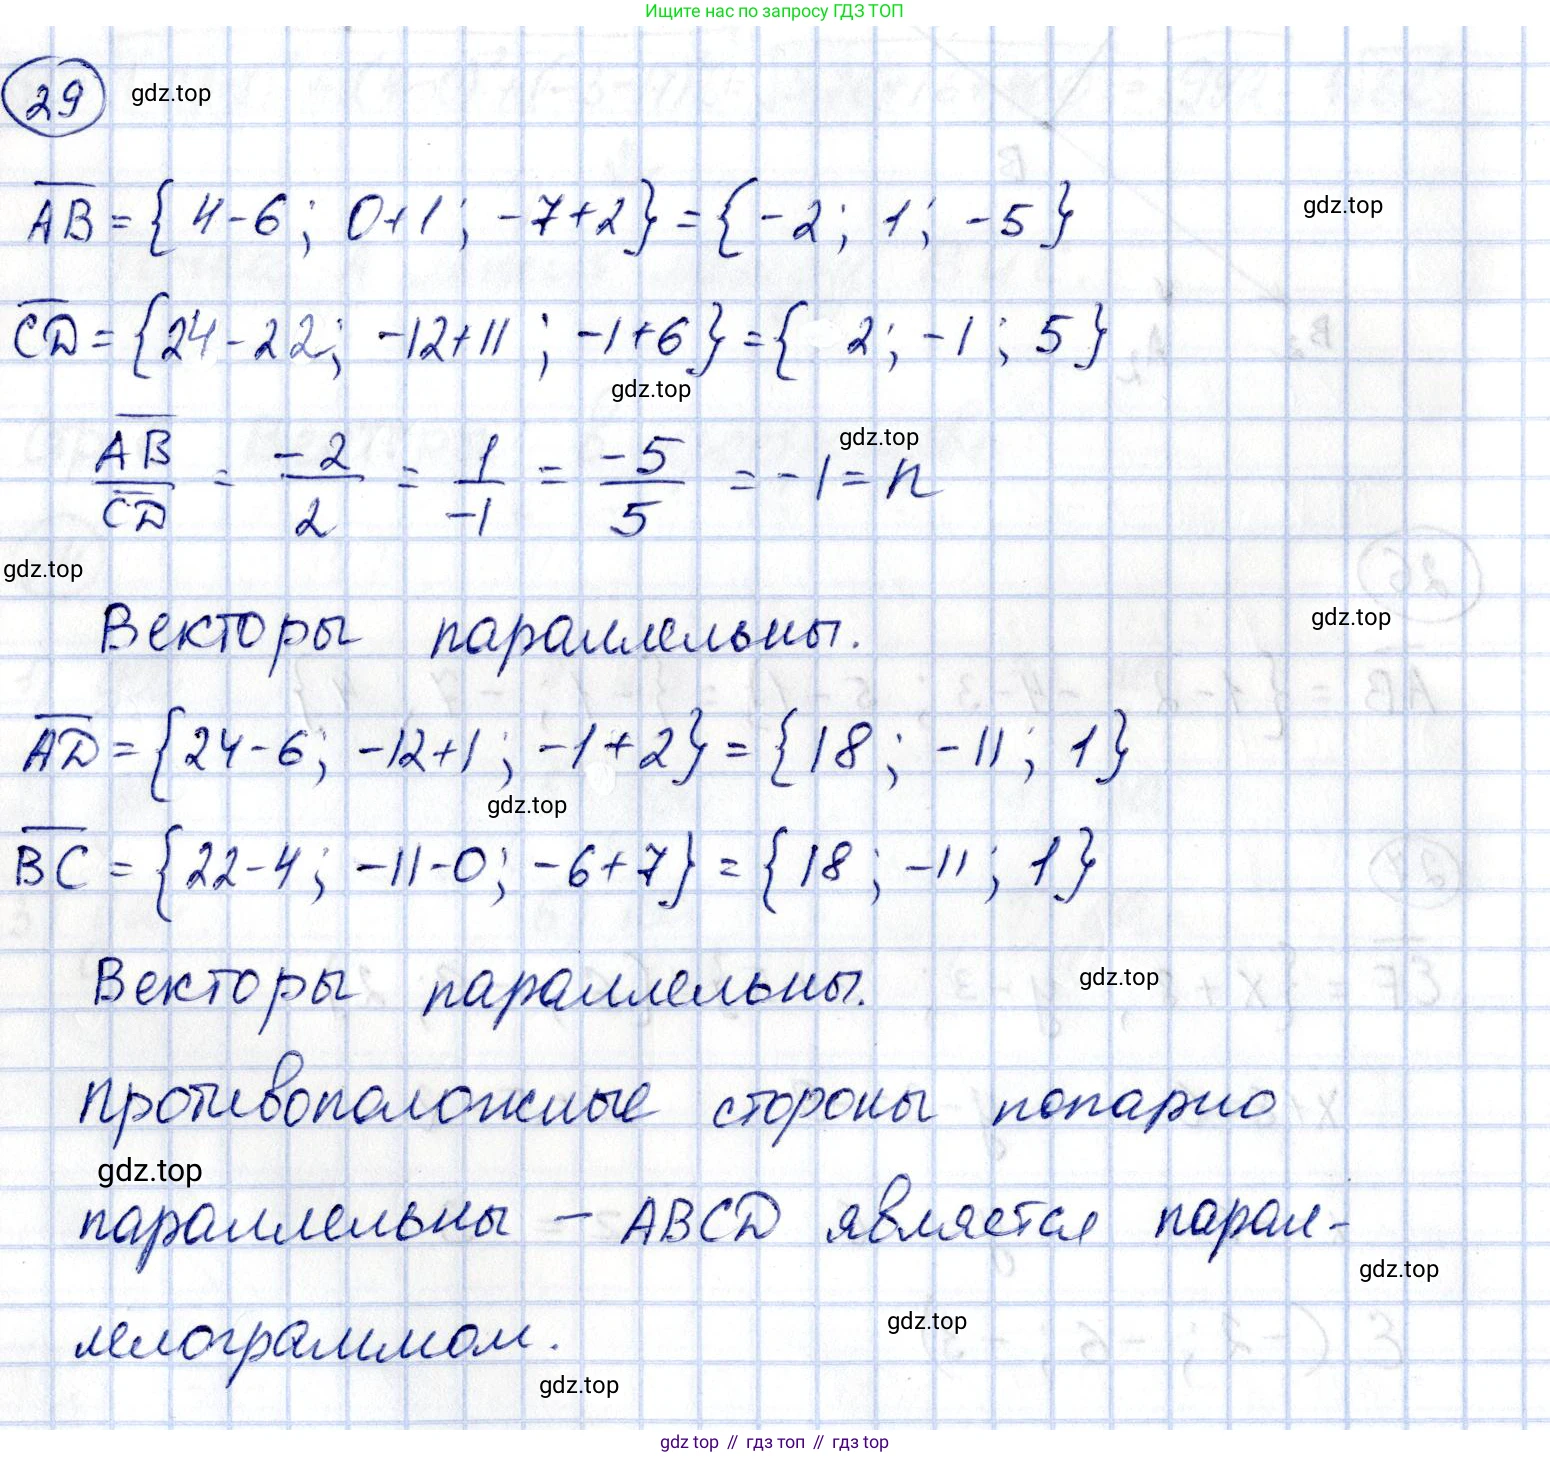 Ищите нас по запросу ГДЗ ТОП
29 gdz.top
AB = {4-6; 0+1; -7+2} = {-2; 1; -5} gdz.top
CD = {24-22; -12+11; -1+6} = { 2; -1; 5}
gdz.top
gdz.top
AB/CD = -2/2 = 1/-1 = -5/5 = -1 = n
gdz.top
Векторы параллельны. gdz.top
AD = {24-6; -12+1; -1+2} = {18; -11; 1}
gdz.top
BC = {22-4; -11-0; -6+7} = {18; -11; 1}
Векторы параллельны. gdz.top
противоположные стороны попарно
gdz.top
параллельны – ABCD является парал-
gdz.top
лелограммом. gdz.top
gdz.top
gdz top // гдз топ // гдз top